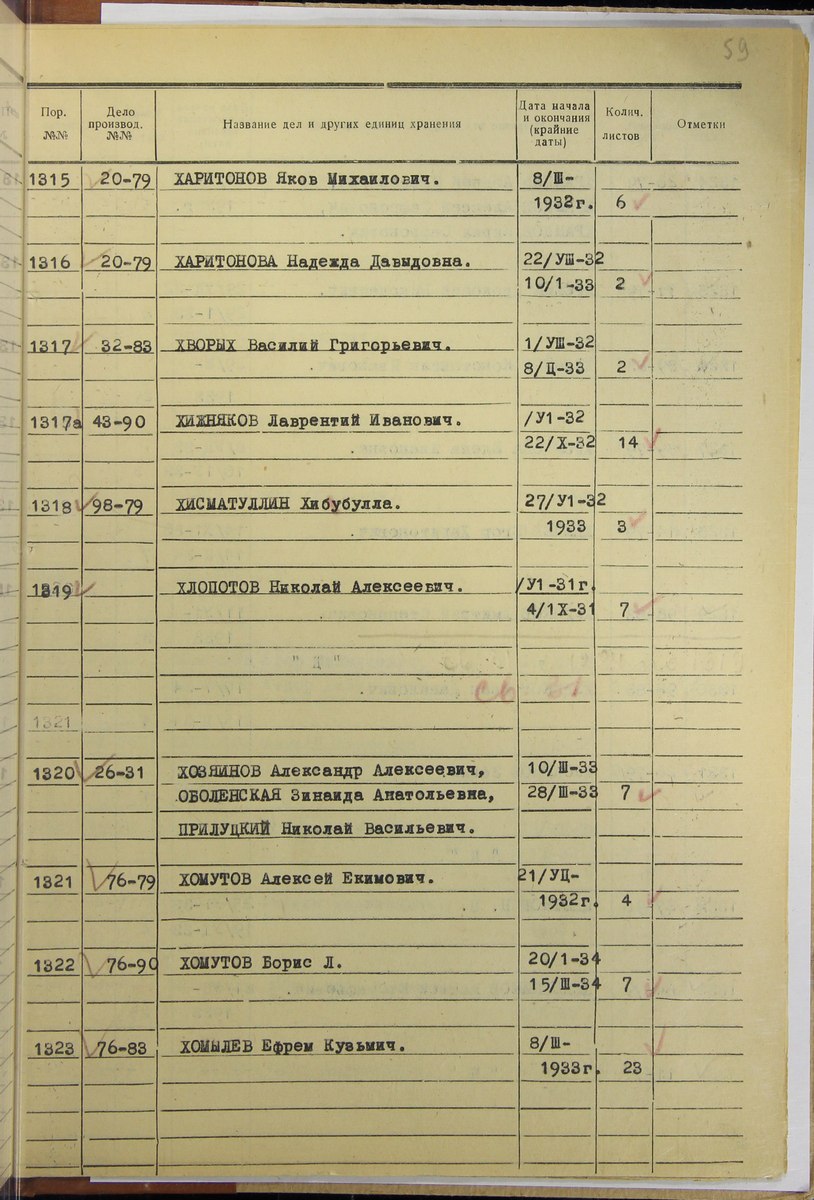 59
Пор. №№ Дело производ. №№ Название дел и других единиц хранения Дата начала и окончания (крайние даты) Колич. листов Отметки
1315 20-79 ХАРИТОНОВ Яков Михаилович. 8/Ш-
1932г. 6
1316 20-79 ХАРИТОНОВА Надежда Давыдовна. 22/УШ-32
10/1-33 2
1317 32-83 ХВОРЫХ Василий Григорьевич. 1/УШ-32
8/Ц-33 2
1317а 43-90 ХИЖНЯКОВ Лаврентий Иванович. /У1-32
22/Х-32 14
1318 98-79 ХИСМАТУЛЛИН Хибубулла. 27/У1-32
1933 3
1319 ХЛОПОТОВ Николай Алексеевич. /У1-31г.
4/1Х-31 7
1321
1320 26-31 ХОЗЯИНОВ Александр Алексеевич, 10/Ш-33
ОБОЛЕНСКАЯ Зинаида Анатольевна, 28/Ш-33 7
ПРИЛУЦКИЙ Николай Васильевич.
1321 76-79 ХОМУТОВ Алексей Екимович. 21/УЦ-
1932г. 4
1322 76-90 ХОМУТОВ Борис Л. 20/1-34
15/Ш-34 7
1323 76-83 ХОМЫЛЕВ Ефрем Кузьмич. 8/Ш-
1933г. 23